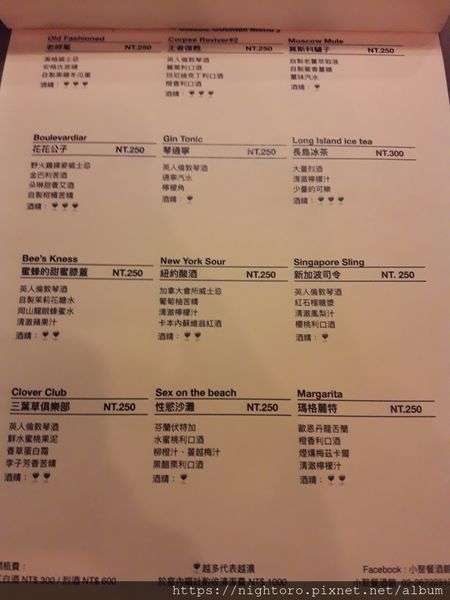 Classic Cocktail Menu 2
Old Fashioned
老時髦 NT.250
酒精：
Corpse Reviver#2
NT.250
英人倫敦琴酒
麗葉利口酒
橙香利口酒
酒精：
Moscow Mule
莫斯科騾子 NT.250
薑味汽水
酒精：
Boulevardiar
花花公子 NT.250
野火雞裸麥威士忌
金巴利苦酒
朵琳甜香艾酒
自製柑橘苦精
酒精：
Gin Tonic
琴通寧 NT.250
英人倫敦琴酒
通寧汽水
檸檬角
酒精：
Long Island ice tea
長島冰茶 NT.300
大量烈酒
清澈檸檬汁
少量的可樂
酒精：
Bee's Kness
蜜蜂的甜蜜膝蓋 NT.250
英人倫敦琴酒
自製茉莉花糖水
岡山龍眼蜂蜜水
清澈蘋果汁
酒精：
New York Sour
紐約酸酒 NT.250
加拿大會所威士忌
葡萄柚苦精
清澈檸檬汁
卡本內蘇維翁紅酒
酒精：
Singapore Sling
新加波司令 NT.250
英人倫敦琴酒
紅石榴糖漿
清澈鳳梨汁
櫻桃利口酒
酒精：
Clover Club
三葉草俱樂部 NT.250
英人倫敦琴酒
鮮水蜜桃果泥
香草蛋白霜
李子芳香苦精
酒精：
Sex on the beach
性慾沙灘 NT.250
芬蘭伏特加
水蜜桃利口酒
柳橙汁、蔓越莓汁
黑醋栗利口酒
酒精：
Margarita
瑪格麗特 NT.250
歐恩丹龍舌蘭
橙香利口酒
煙燻梅茲卡爾
清澈檸檬汁
酒精：
開瓶費：
越多代表越濃
Facebook : 小聖餐酒館
紅白酒 NT$ 300 / 烈酒 NT$ 600
NT$ 1000
https://nightoro.pixnet.net/album